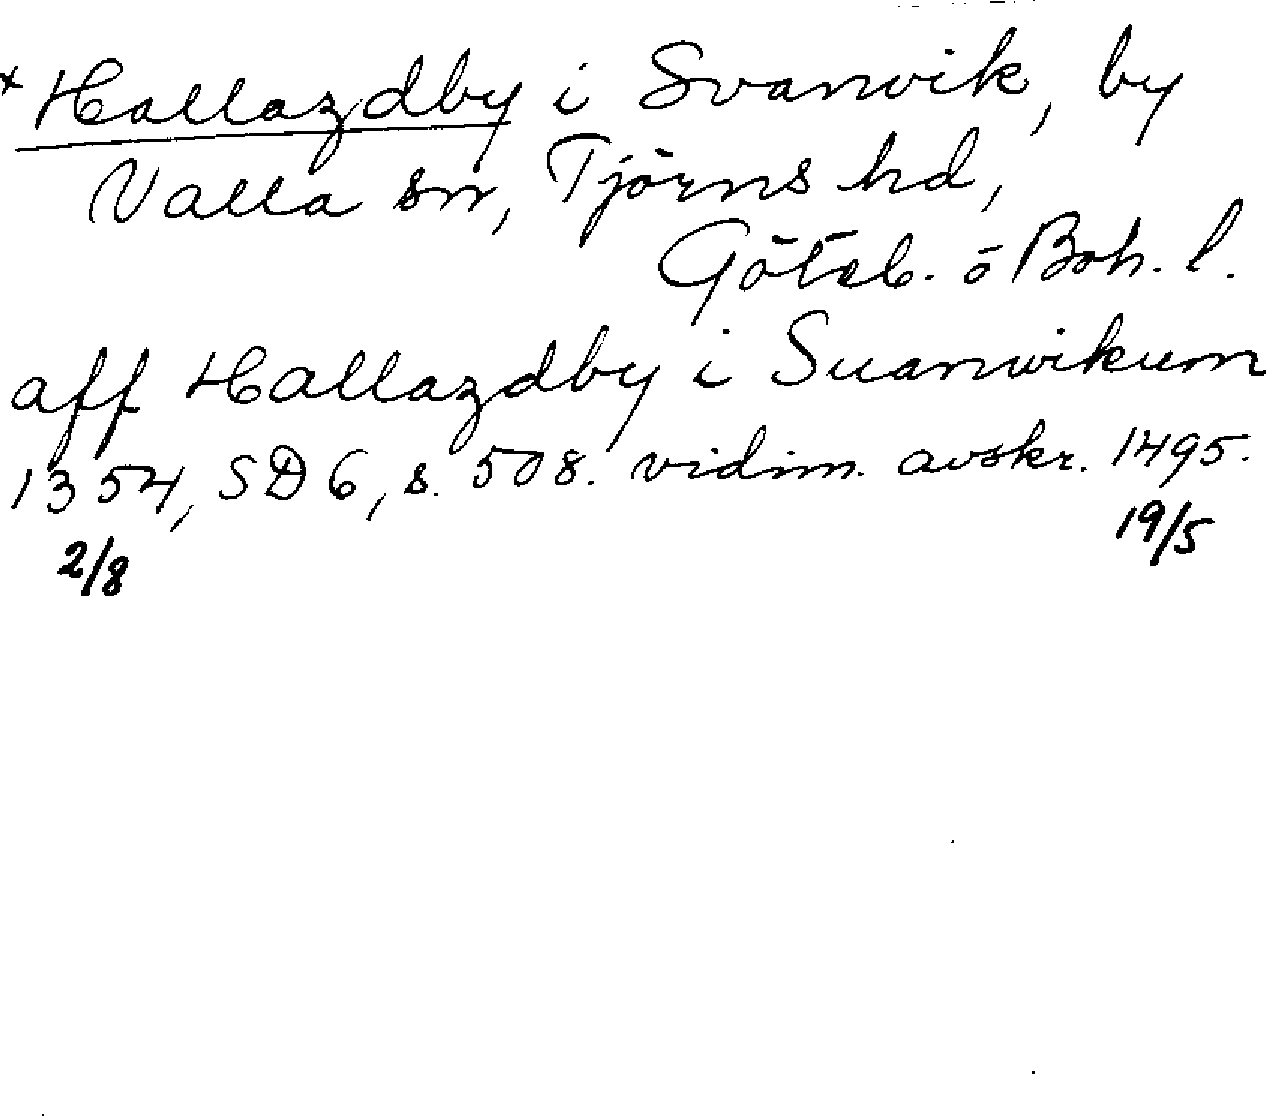 * Hallazdby i Svanvik, by
Valla sn, Tjörns hd,
Göteb. o Boh. l.
aff Hallazdby i Suanwikum
1354, SD 6, s. 508. vidim. avskr. 1495.
2/8 19/5